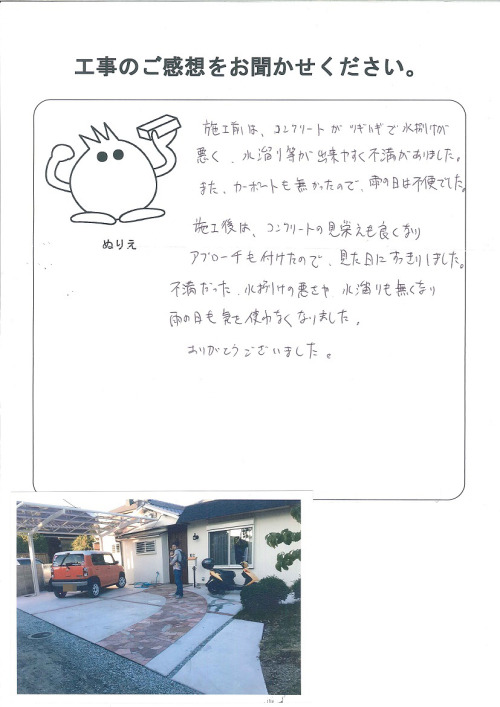 工事のご感想をお聞かせください。
ぬりえ
施工前は、コンクリートがツギハギで水捌けが
悪く、水溜り等が出来やすく不満がありました。
また、カーポートも無かったので、雨の日は不便でした。
施工後は、コンクリートの見栄えも良くなり
アプローチも付けたので、見た目にすっきりしました。
不満だった、水捌けの悪さや、水溜りも無くなり
雨の日も気を使わなくなりました。
ありがとうございました。